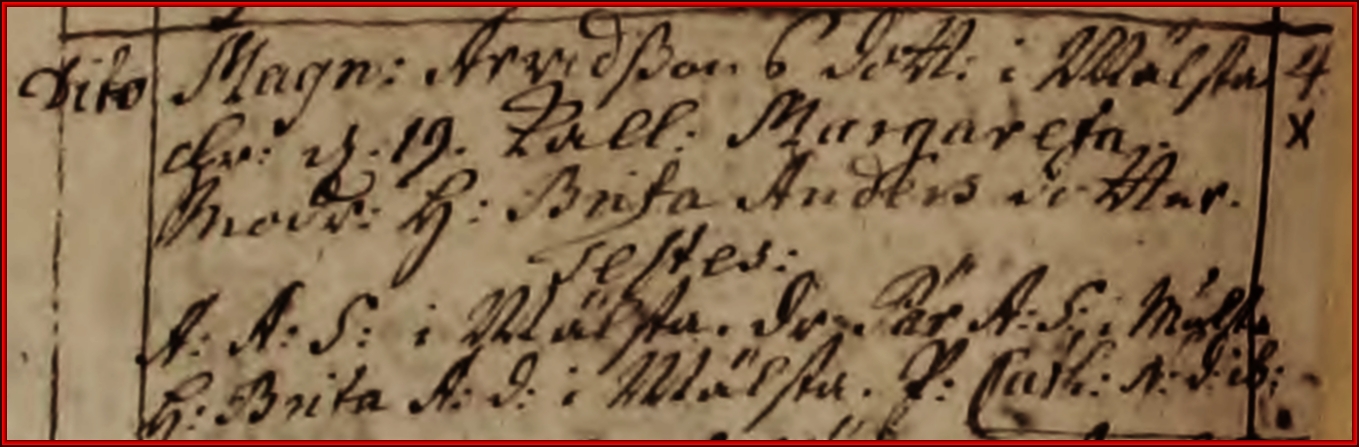 Dito Magn: Arvidßons dott: i Wälsta 4
chr: d. 19. Kall: Margareta. x
Modr: H: Brita Anders dotter.
Testes:
A: A: S: i Wälsta. Dr. Pär A: S: i Wälsta
H: Brita A: d: i Wälsta. P: Cath: A: d: ib: